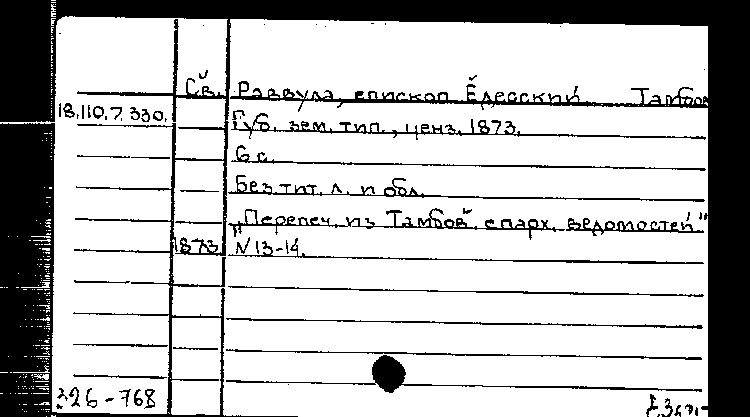 Св. Раввула, епископ Едесский. Тамбов
18.110.7.330. Губ. зем. тип., ценз. 1873.
6 с.
Без тит. л. и обл.
„Перепеч. из Тамбов. епарх. ведомостей"
1873. N 13-14.
326-768